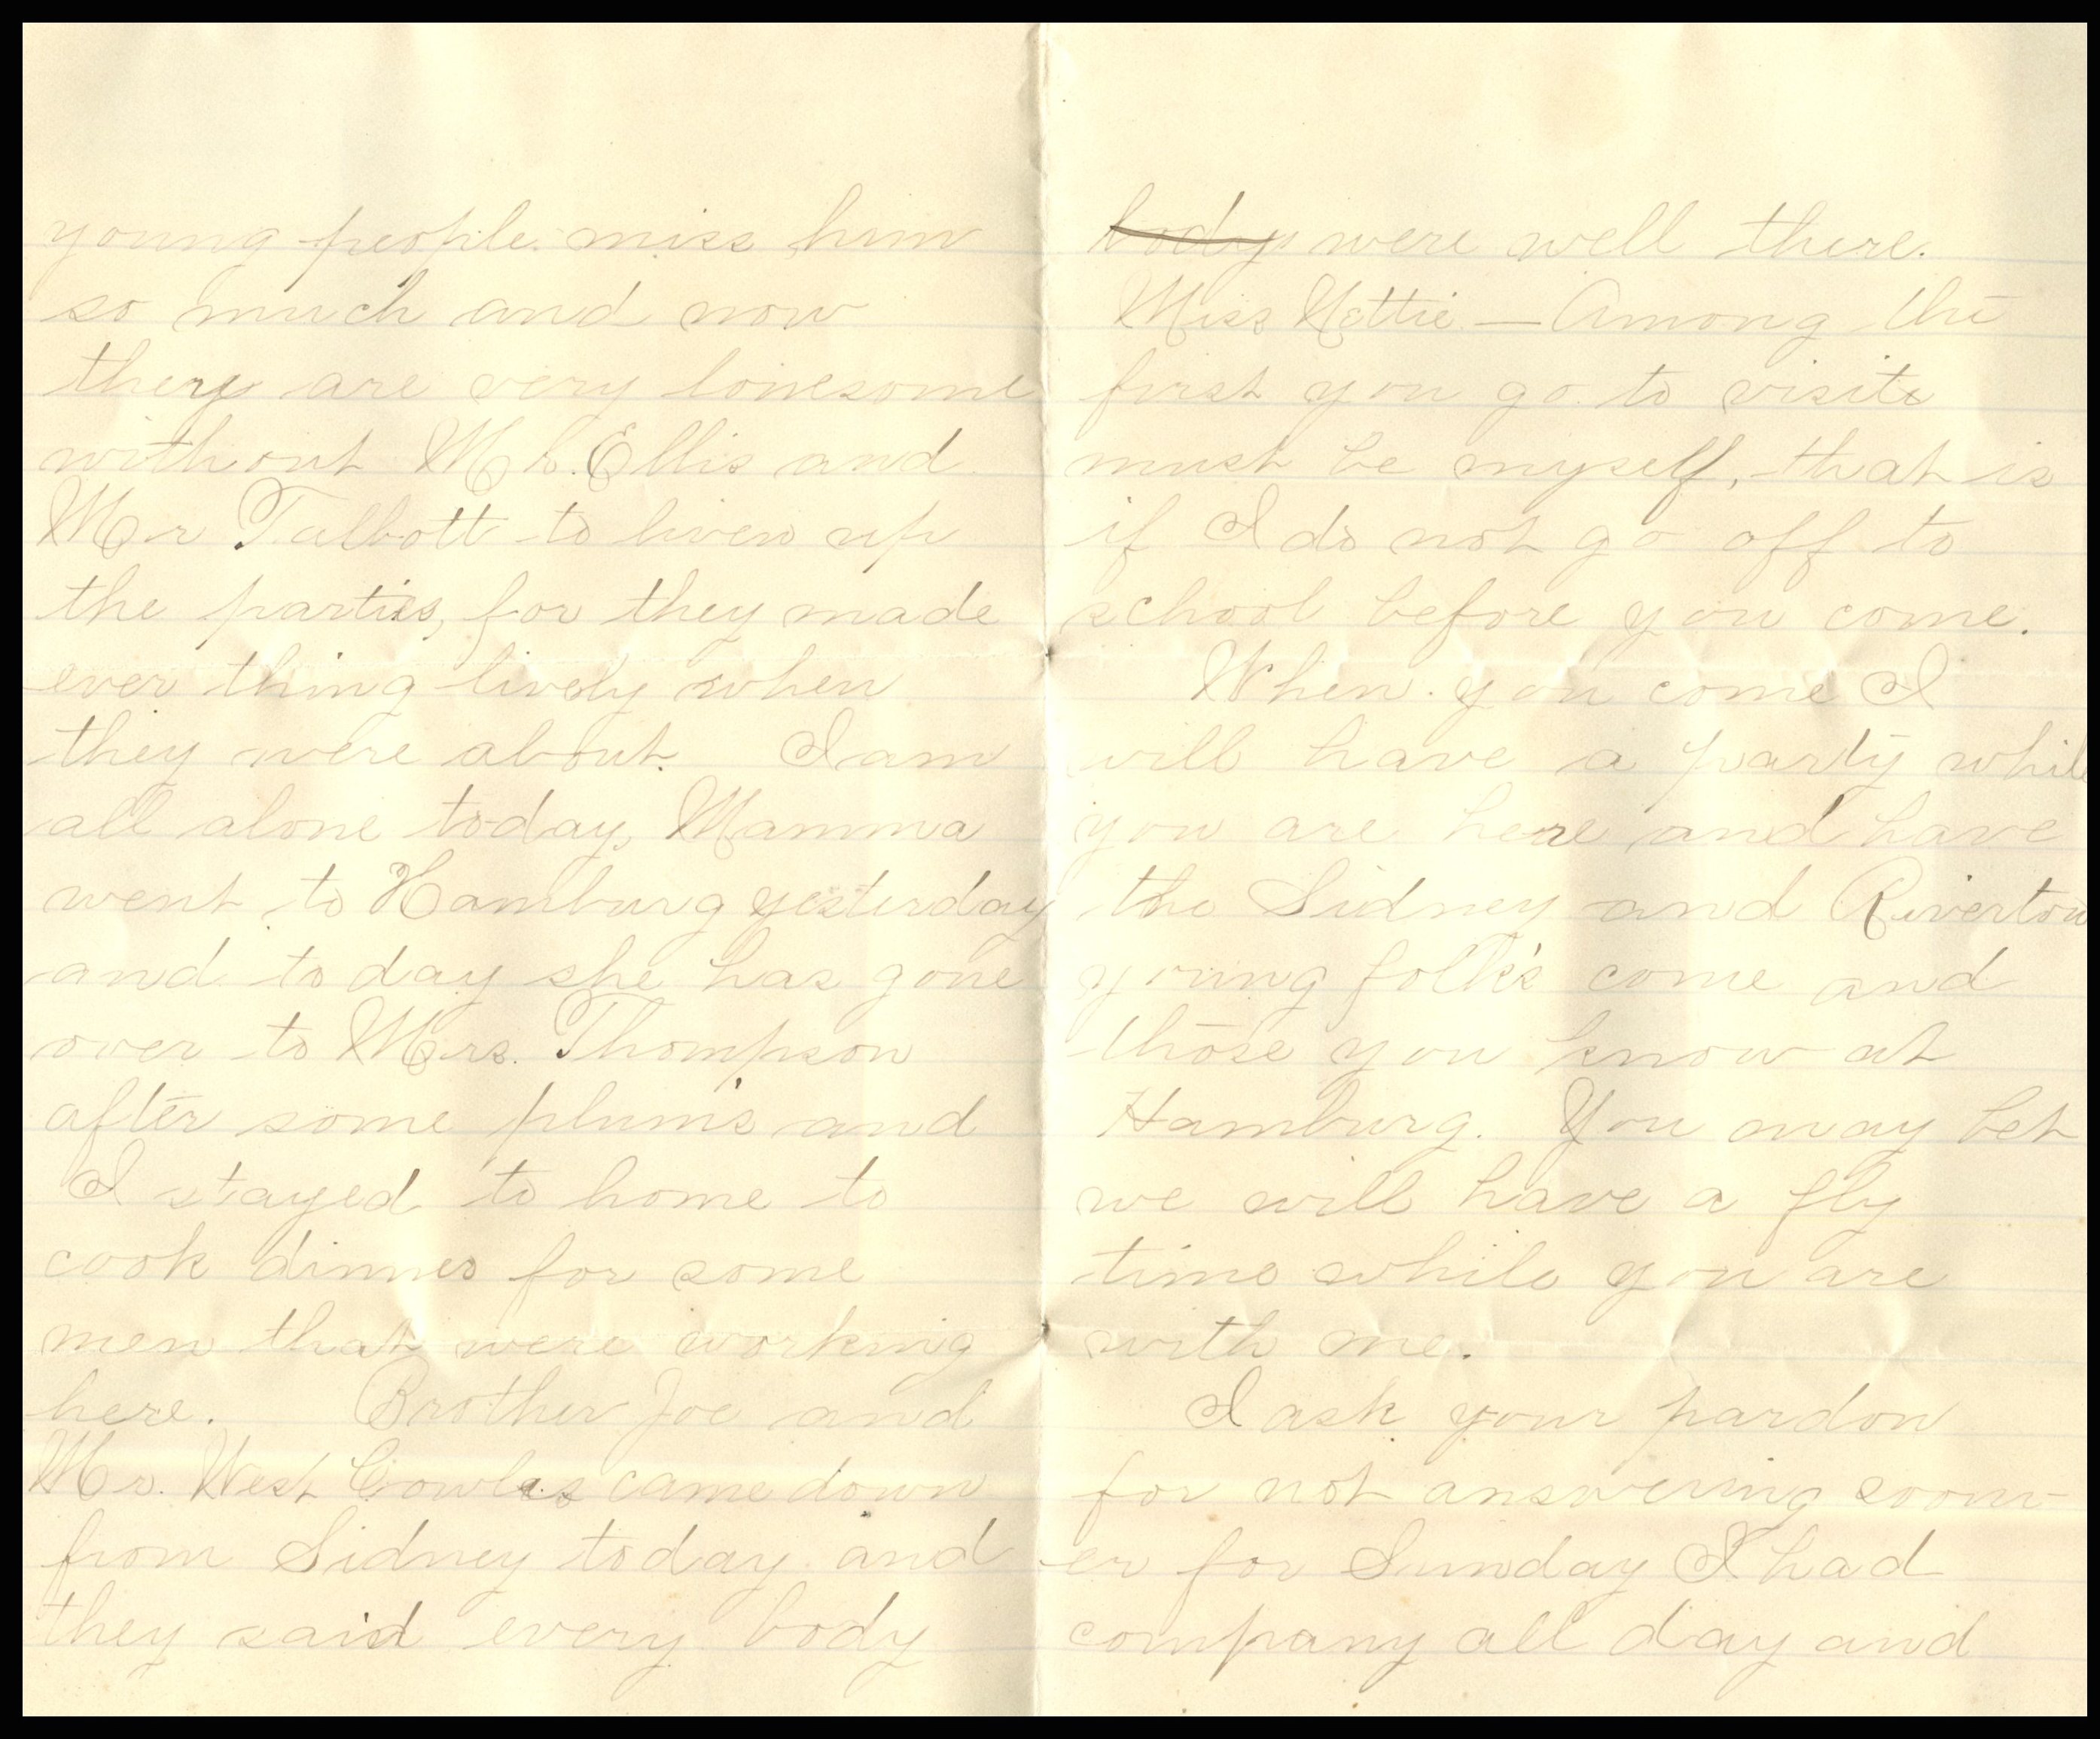 young people miss him
so much and now
they are very lonesome
without Mr. Ellis and
Mr Talbott to liven up
the parties, for they made
ever thing lively when
they were about. I am
all alone today, Mamma
went to Hamburg yesterday
and today she has gone
over to Mrs. Thompson
after some plum's and
I stayed to home to
cook dinner for some
men that were working
here. Brother Joe and
Mr. West Cowles came down
from Sidney today and
they said every body
body were well there.
Miss Nettie — Among the
first you go to visit
must be myself, that is
if I do not go off to
school before you come.
When you come I
will have a party while
you are here and have
the Sidney and Riverton
young folk's come and
those you know at
Hamburg. You may bet
we will have a fly
time while you are
with me.
I ask your pardon
for not answering soon-
er for Sunday I had
company all day and